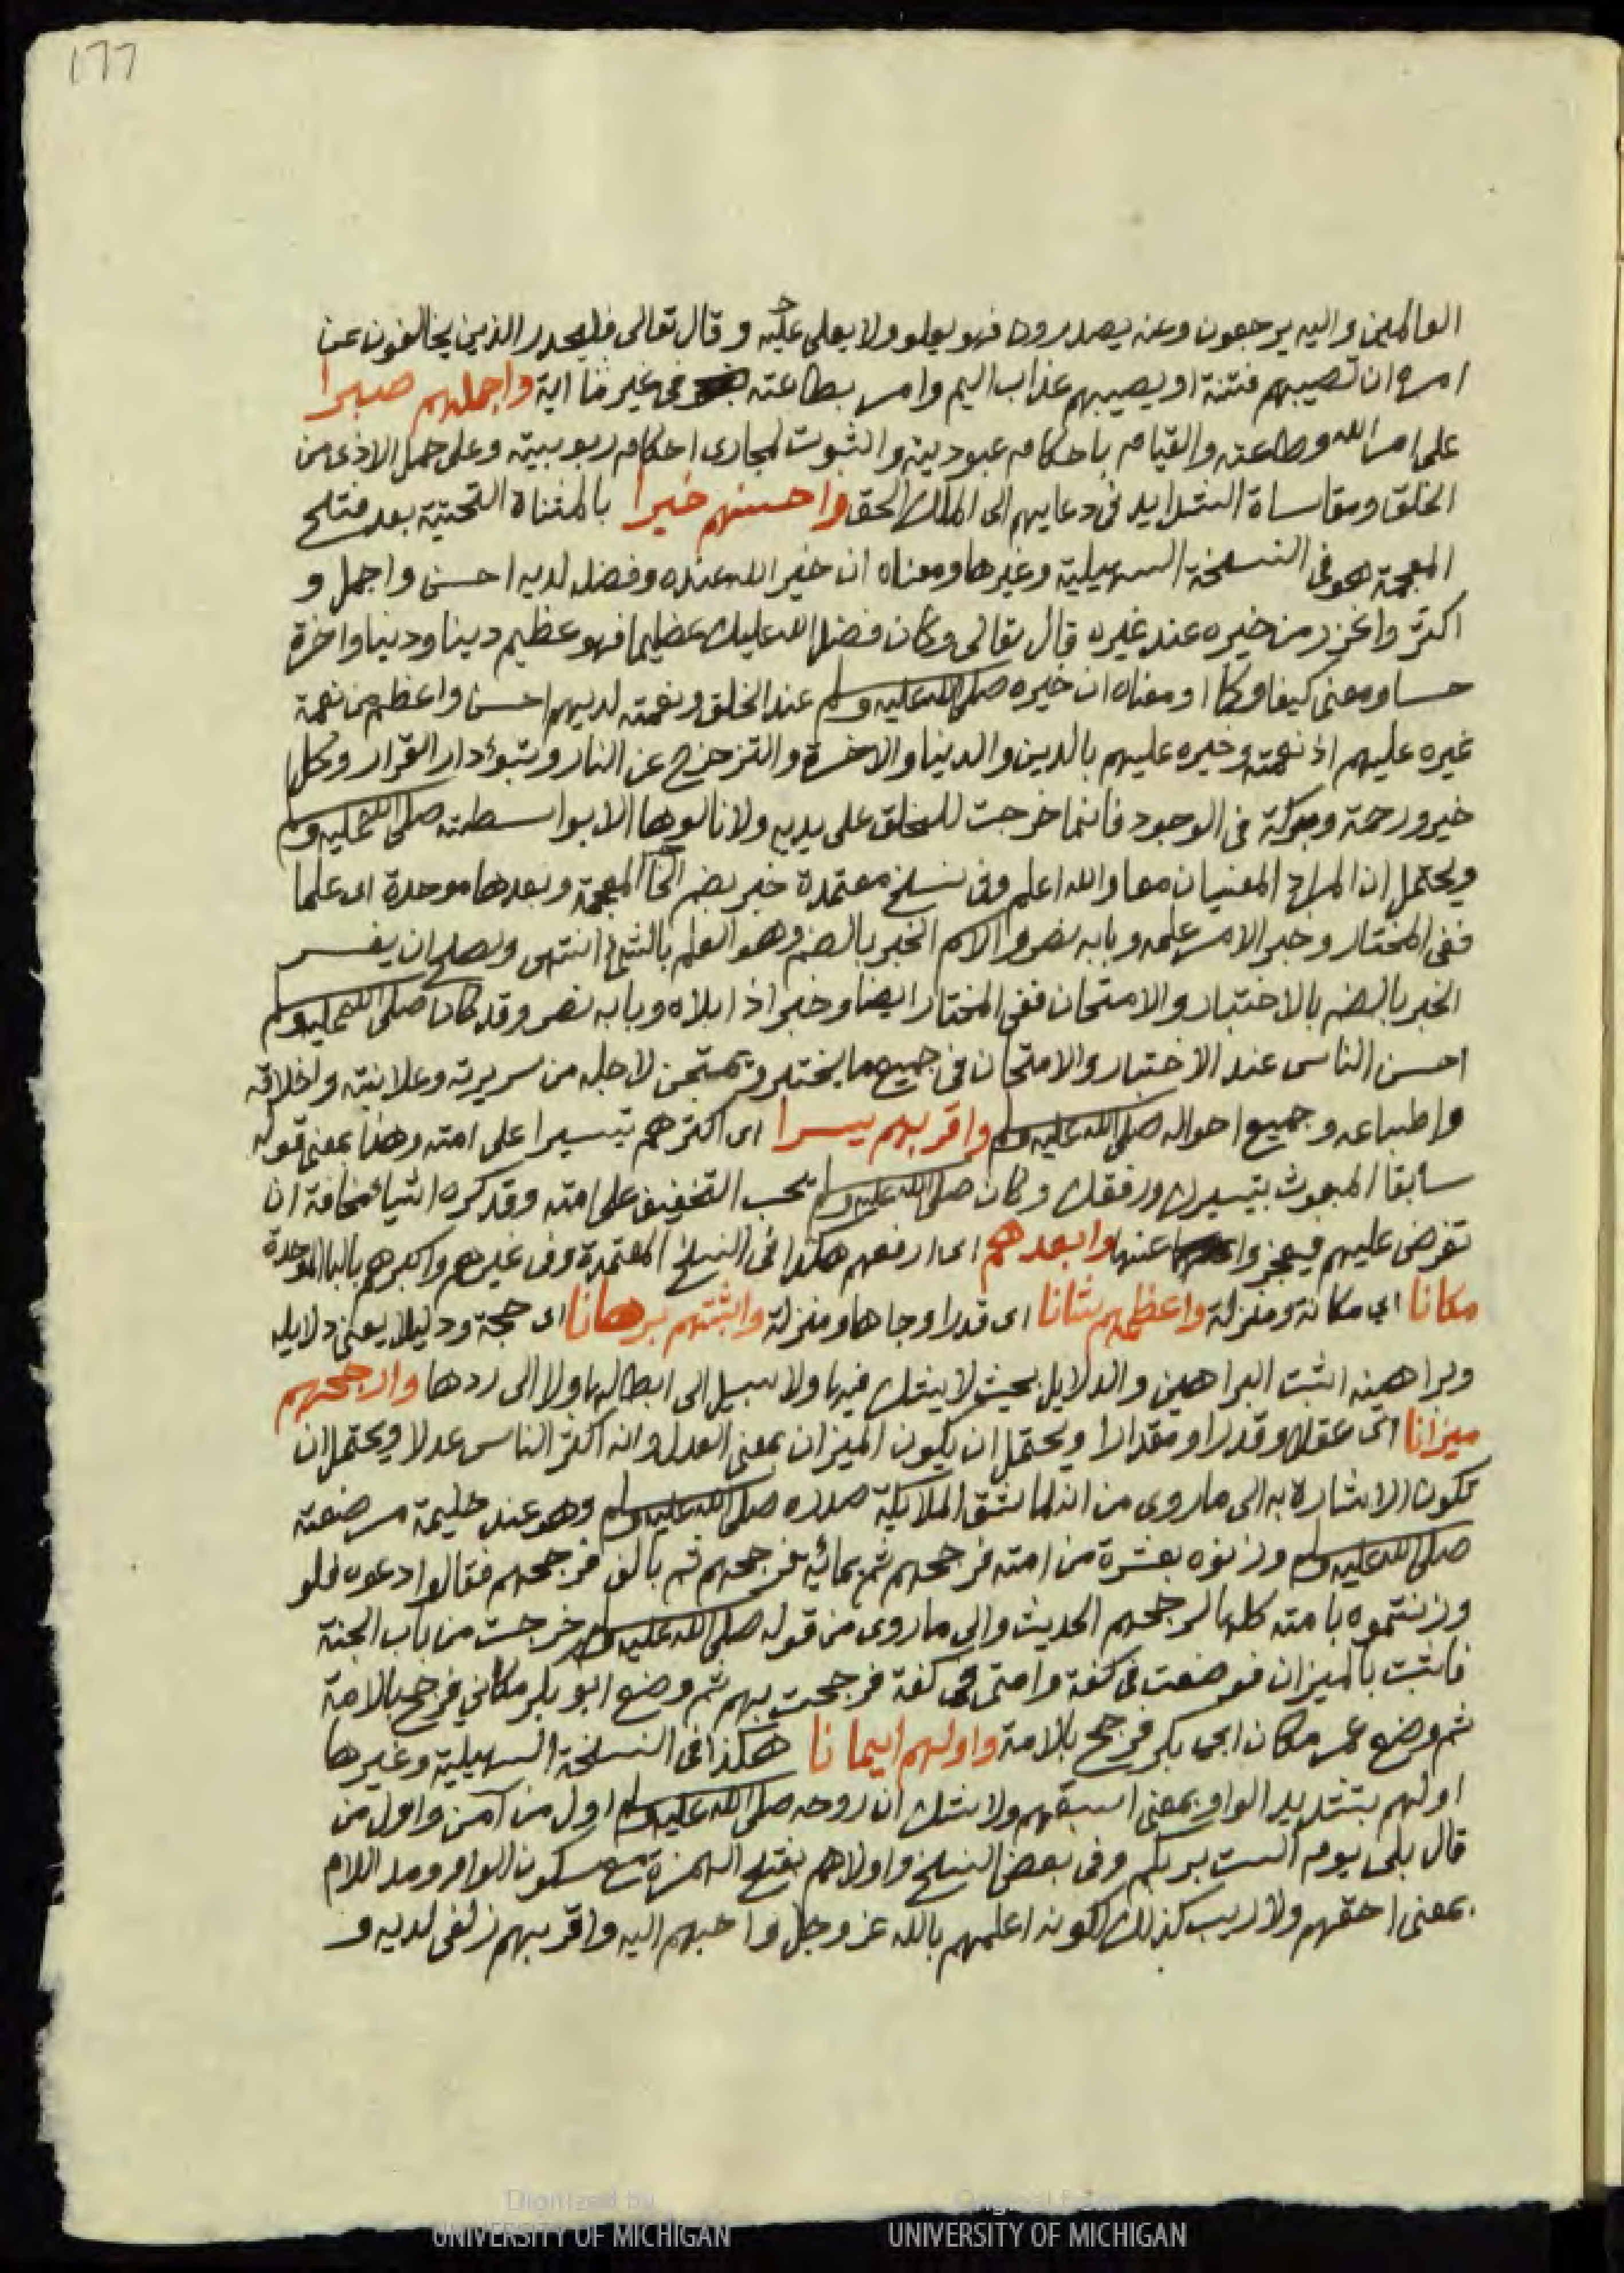 ١٦٦
العالمين واليه يرجعون وعنه يصدرون فهو يعلو ولا يعلى عليه وقال تعالى فليحدر الذين يخالفون عن
امره ان تصيبهم فتنة او يصيبهم عذاب اليم وامر بطاعته في غير ما اية واجملهم صبرا
على امر الله وطاعته والقيام باحكام عبوديته والثبوت لمجارى احكام ربوبيته وعلى حمل الاذى من
الخلق ومقاساة الشدايد فى دعايهم الى الملك الحق واحسنهم خيرا بالمثناة التحتية بعد فتح
المعجمة هو فى النسخة السهيلية وغيرها ومعناه ان خير الله عنده وفضله لديه احسن واجمل و
اكثر واغزر من خيره عند غيره قال تعالى وكان فضل الله عليك عظيما فهو عظيم دينا ودنيا واخرة
حسا ومعنى كيفا وكما او معناه ان خيره صلى الله عليه وسلم عند الخلق ونعمته لديهم احسن واعظم من نعمة
غيره عليهم اذ نعمته وخيره عليهم بالدين والدنيا والاخرة والتزحزح عن النار وتبوؤ دار القرار وكل
خير ورحمة وبركة فى الوجود فانما خرجت للخلق على يديه ولا نالوها الا بواسطته صلى الله عليه وسلم
ويحتمل ان المراد المعنيان معا والله اعلم وفى نسخ معتمدة خبر بضم الخا المعجمة وبعدها موحدة اى علما
ففى المختار وخبر الامر علمه وبابه نصر والاسم الخبر بالضم وهو العلم بالشئ انتهى ويصلح ان يفسر
الخبر بالضم بالاختبار والامتحان ففى المختار ايضا وخبر اذا بلاه وبابه نصر وقد كان صلى الله عليه وسلم
احسن الناس عند الاختبار والامتحان فى جميع ما يختبر ويمتحن لاجله من سريرته وعلانيته واخلاقه
واطباعه وجميع احواله صلى الله عليه وسلم واقربهم يسرا اى اكثرهم تيسيرا على امته وهذا بمعنى قوله
سابقا المبعوث بتيسيرك ورفقك وكان صلى الله عليه وسلم يحب التخفيف على امته وقد كره اشياء مخافة ان
تفرض عليهم فيعجزوا عنها وابعدهم اى ارفعهم هكذا فى النسخ المعتمدة وفى غيرهم واكبرهم بالبا الموحدة
مكانا اى مكانة ومنزلة واعظمهم شانا اى قدرا وجاها ومنزلة واثبتهم برهانا اى حجة ودليلا يعنى دلايله
وبراهينه اثبت البراهين والدلايل بحيث لا يشك فيها ولا سبيل الى ابطالها ولا الى ردها وارجحهم
ميزانا اى عقلا وقدرا ومقدارا ويحتمل ان يكون الميزان بمعنى العدل وانه اكثر الناس عدلا ويحتمل ان
تكون الاشارة به الى ما روى من انه لما شق الملايكة صدره صلى الله عليه وسلم وهو عند حليمة مرضعته
صلى الله عليه وسلم وزنوه بعشرة من امته فرجحهم ثم بمائه فرجحهم ثم بالف فرجحهم فقالوا دعوه فلو
وزنتموه بامته كلها لرجحهم الحديث والى ما روى من قوله صلى الله عليه وسلم خرجت من باب الجنة
فاتيت بالميزان فوضعت فى كفة وامتى فى كفة فرجحت بهم ثم وضع ابو بكر مكاني فرجح بالامة
ثم وضع عمر مكان ابى بكر فرجح بالامة واولهم ايمانا هكذا فى النسخة السهيلية وغيرها
اولهم بتشديد الواو بمعنى اسبقهم ولا شك ان روحه صلى الله عليه وسلم اول من آمن واول من
قال بلى يوم الست بربكم وفى بعض النسخ واولاهم بفتح الهمزة مع سكون الواو ومد اللام
بمعنى احقهم ولا ريب كذلك لكونه اعلمهم بالله عز وجل واحبهم اليه واقربهم زلفى لديه و
Digitized by
UNIVERSITY OF MICHIGAN
Original from
UNIVERSITY OF MICHIGAN